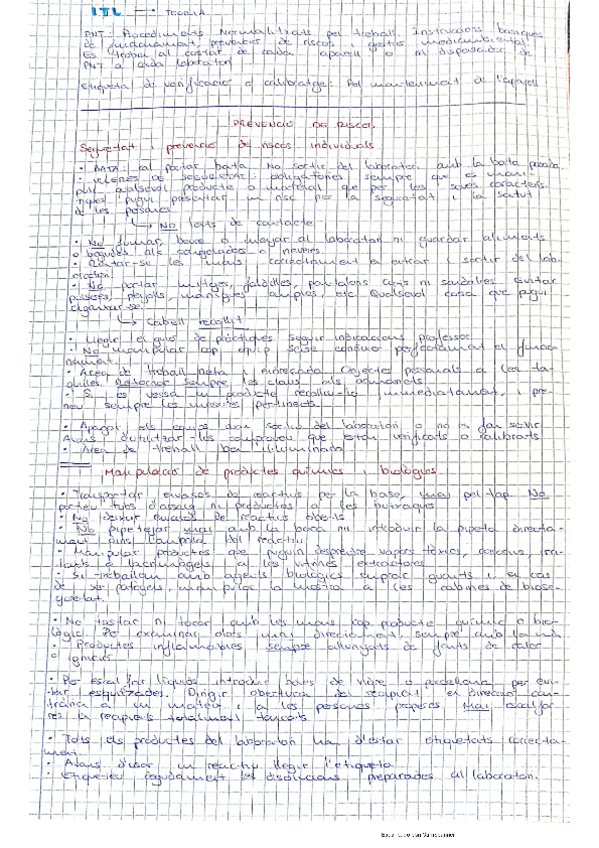 ITL → TEORIA
PNT: Procediments Normalitzats pel treball. Instruccions bàsiques
de funcionament, prevenció de riscos i gestió mediambiental
Es troben al costat de cada aparell o al dispensador de
PNT a cada laboratori
Etiqueta de verificació o calibratge: Pel manteniment de l'aparell
PREVENCIÓ DE RISCOS
Seguretat i prevenció de riscos individuals
• BATA: cal portar bata. No sortir del laboratori amb la bata posada
• Ulleres de seguretat: obligatòries sempre que es mani-
puli qualsevol producte o material que per les seves caracterís-
tiques pugui presentar un risc per la seguretat i la salut
de les persones
↳ No lents de contacte
• No fumar, beure o menjar al laboratori ni guardar aliments
o begudes als congeladors o neveres
• Rentar-se les mans correctament en entrar i sortir del lab-
oratori
• No portar mitges, faldilles, pantalons curts ni sandàlies. Evitar
pulseres, penjolls, mànigues amples, etc. Qualsevol cosa que pugui
enganxar-se.
↳ Cabell recollit
• Llegir el guió de pràctiques seguir indicacions professor
• No manipular cap equip sense conèixer perfectament el funcio-
nament.
• Àrea de treball neta i endreçada. Objectes personals a les ta-
quilles. Retornar sempre les claus als armariets
• Si es vessa un producte recolliu-lo immediatament, i pre-
neu sempre les mesures pertinents
• Apagar els equips abans sortir del laboratori o no es fan servir
Abans d'utilitzar-los comproveu que estan verificats o calibrats
• Àrea de treball ben il·luminada
Manipulació de productes químics i biològics
• Transportar envasos de reactius per la base, mai pel tap. No
porteu tubs d'assaig ni productes a les butxaques
• No deixar envasos de reactius oberts
• No pipetejar mai amb la boca ni introduir la pipeta directa-
ment dins l'ampolla del reactiu
• Manipular productes que puguin desprendre vapors tòxics, corrosius, irri-
tants o lacrimògens a les vitrines extractores
• Si treballem amb agents biològics emprar guants i, en cas
de ser patògens, manipular la mostra a les cabines de biose-
guretat.
• No tastar ni tocar amb les mans cap producte químic o bio-
lògic. Per examinar olors mai directament, sempre amb la mà
• Productes inflamables sempre allunyats de fonts de calor
o ignició
• Per escalfar líquids introduir boles de vidre o porcellana per evi-
tar esquitxades. Dirigir obertura del recipient en direcció con-
trària a un mateix i a les persones properes. Mai escalfar
res en recipients totalment tancats
• Tots els productes del laboratori han d'estar etiquetats correcta-
ment.
• Abans d'usar un reactiu llegir l'etiqueta
• Etiqueteu degudament les dissolucions preparades al laboratori.